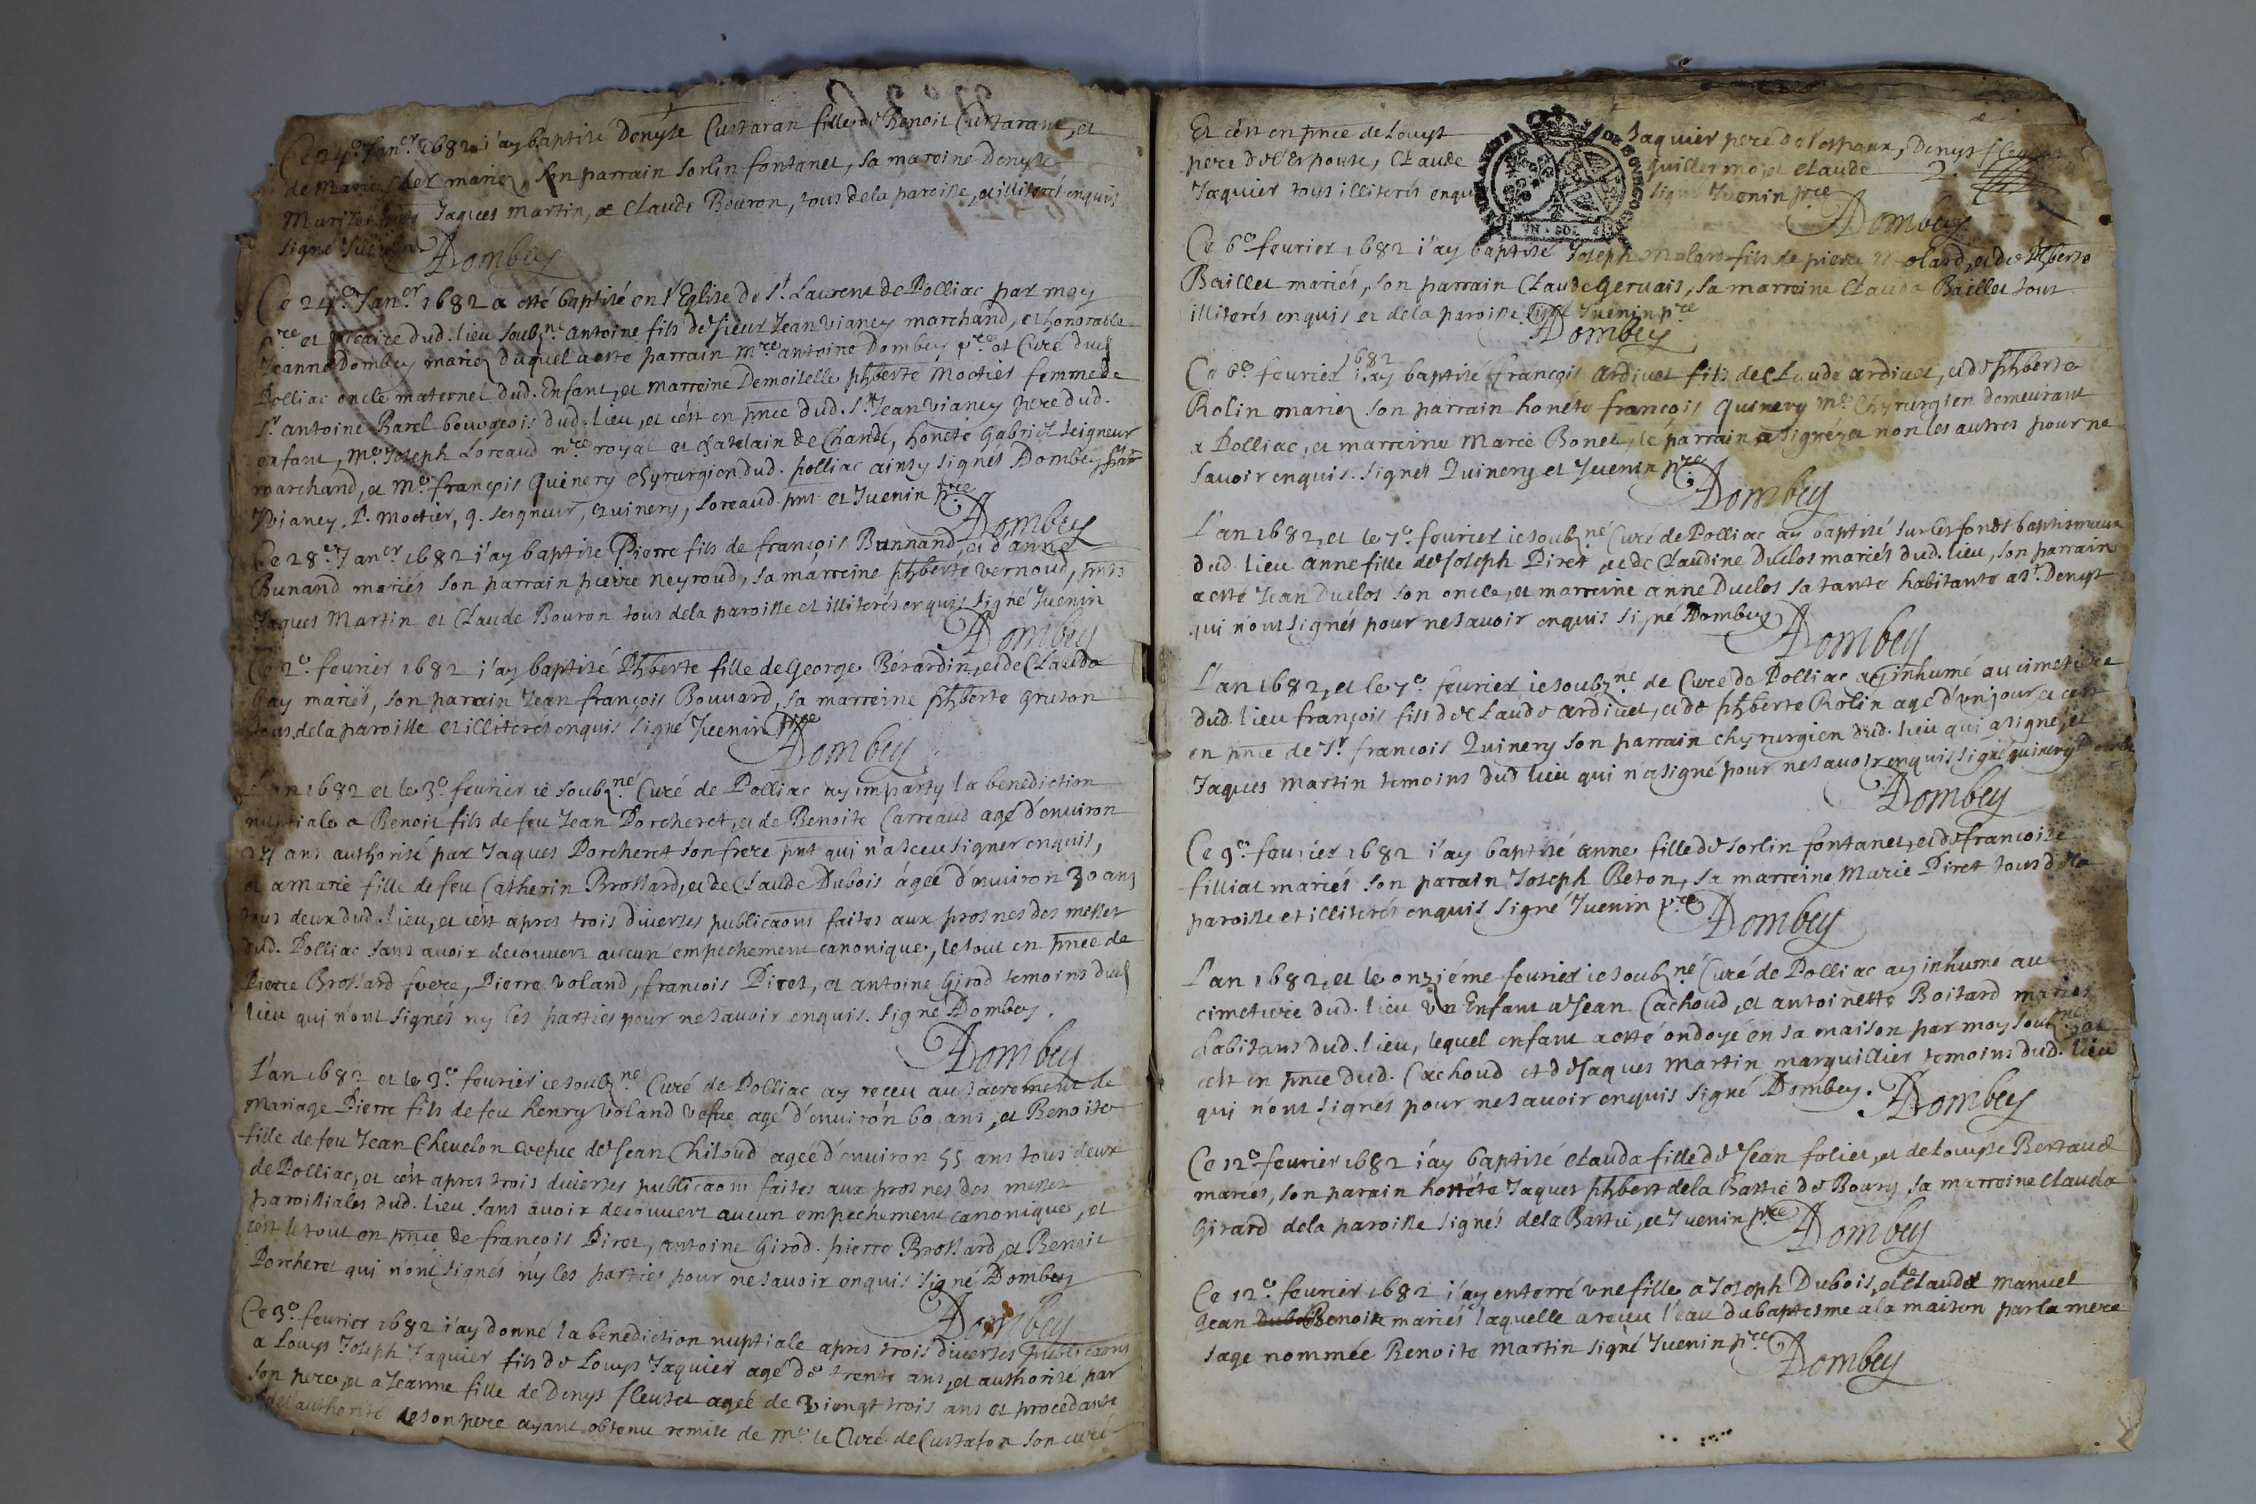 Ce 24e Janer 1682 i'ay baptisé Denyse Curtaran fille de Benoit Curtaran, et
de Marie mariez, son parrain Sorlin fontanel, sa maroine Denyse
Jaques Martin, et Claude Bouron, tous de la paroisse, et illiterés enquis
signé Juenin
Dombey
Ce 24e Janer 1682 a esté baptisé en l'Eglise de St. Laurent de Polliac par moy
pre et vicaire dud. lieu soubzné antoine fils de sieur Jean Vianey marchand, et honorable
Jeanne Dombey mariez duquel a esté parrain mre antoine Dombey pre et Curé dud
Polliac oncle maternel dud. Enfant, et marreine Demoiselle phberte Moctier femme de
Sr antoine Barel bourgeois dud. lieu, et c'est en pnce dud. Sr. Jean Vianey pere dud.
enfant, me. Joseph Loreaud nre royal et chatelain de Chandé, honete Gabriel Seigneur
marchand, et Me françois Quinery chyrurgien dud. polliac ainsy signés Dombey
Vianey, P. Moctier, g. seigneur, Quinery, Loreaud pnt et Juenin pre
Dombey
Ce 28e Janer 1682 i'ay baptisé Pierre fils de françois Bunnand, et d'anne
Bunand mariés son parrain pierre neyroud, sa marreine phberte vernoud, pnts
Jaques Martin et Claude Bouron tous de la paroisse et illiterés enquis signé Juenin
Dombey
Ce 2e fevrier 1682 i'ay baptisé Phberte fille de George Berardin, et de Clauda
Gay mariés, son parrain Jean françois Bouvard, sa marreine phberte gruson
tous de la paroisse et illiterés enquis signé Juenin pre
Dombey
L'an 1682 et le 3e fevrier ie soubzné Curé de Polliac ay imparty la benediction
nuptiale a Benoit fils de feu Jean Porcheret, et de Benoite Carreaud agé d'environ
ans authorisé par Jaques Porcheret son frere pnt qui n'a sceu signer enquis,
et a Marie fille de feu Catherin Brossard, et de Claude Dubois agée d'environ 30 ans
tous deux dud. lieu, et c'est apres trois diverses publicaons faites aux prosnes des messes
dud. Polliac sans avoir decouvert aucun empechement canonique, le tout en pnce de
Pierre Brossard frere, Pierre Voland, francois Piret, et antoine Girod temoins dud
lieu qui n'ont signés ny les parties pour ne savoir enquis. signé Dombey.
Dombey
L'an 1682 et le 3e fevrier ie soubzné Curé de Polliac ay receu au sacrement de
Mariage Pierre fils de feu henry Voland vefue agé d'environ 60 ans, et Benoite
fille de feu Jean Chevelon vefue de Jean Chiloud agée d'environ 55 ans tous deux
de Polliac, et c'est apres trois diverses publicaons faites aux prosnes des messes
paroissiales dud. lieu sans avoir decouvert aucun empechement canonique, et
c'est le tout en pnce de françois Piret, antoine Girod, pierre Brossard, et Benoit
Porcheret qui n'ont signés ny les parties pour ne savoir enquis signé Dombey
Dombey
Ce 3e fevrier 1682 i'ay donné la benediction nuptiale apres trois diverses publicaons
a Louys Joseph Jaquier fils de Louys Jaquier agé de trente ans, et authorisé par
son pere, et a Jeanne fille de Denys fleutet agée de viengt trois ans et procedante
de l'authorité de son pere ayant obtenu remise de Mr le Curé de Curtafon son curé
Et c'est en pnce de Louys Jaquier pere de l'espoux, Denys
pere de l'espouse, Claude guillermo, et Claude
Jaquier tous illiterés enquis signé Juenin pre
VN · SOL
Dombey
Ce 6e fevrier 1682 i'ay baptisé Joseph Molard fils de pierre Molard, et de phberte
Baillet mariés, son parrain Claude Gervais, sa marreine Clauda Baillet tous
illiterés enquis et de la paroisse signé Juenin pre
Dombey
1682
Ce 6e fevrier i'ay baptisé françois Ardivet fils de Claude ardivet, et de phberte
Rolin mariez son parrain honete françois Quinery Me Chyrurgien demeurant
a Polliac, et marreine Marie Bonet, le parrain a signé, et non les autres pour ne
savoir enquis. signés Quinery et Juenin pre
Dombey
L'an 1682, et le 7e fevrier ie soubzné Curé de Polliac ay baptisé sur les fonds baptismaux
dud. lieu anne fille de Joseph Piret, et de Claudine Duclos mariés dud. lieu, son parrain
a esté Jean Duclos son oncle, et marreine anne Duclos sa tante habitante a St. Denys
qui n'ont signés pour ne savoir enquis signé Dombey
Dombey
L'an 1682, et le 7e fevrier ie soubzné de Curé de Polliac ay inhumé au cimetiere
dud. lieu françois fils de Claude Ardivet, et de phberte Rolin agé d'un jour, et c'est
en pnce de Sr. francois Quinery son parrain chyrurgien dud. lieu qui a signé, et
Jaques Martin temoins dud lieu qui n'a signé pour ne savoir enquis signé quinery
Dombey
Ce 9e fevrier 1682 i'ay baptisé anne fille de Sorlin fontanel, et de francoise
filliat mariés son parain Joseph Beton, sa marreine Marie Piret tous de la
paroisse et illiterés enquis signé Juenin pre
Dombey
L'an 1682, et le onziéme fevrier ie soubzné Curé de Polliac ay inhumé au
cimetiere dud. lieu un Enfant a Jean Cachoud, et antoinette Boitard mariés
habitans dud. lieu, lequel enfant a esté ondoyé en sa maison par moy soubzné, et
c'est en pnce dud. Cachoud et de Jaques Martin marguillier temoins dud. lieu
qui n'ont signés pour ne savoir enquis signé Dombey.
Dombey
Ce 12e fevrier 1682 i'ay baptisé Clauda fille de Jean foliet, et de Louyse Bertaud
mariés, son parain honete Jaques phbert de la Bastie de Bourg sa marreine Clauda
Girard de la paroisse signés de la Bastie, et Juenin pre
Dombey
Ce 12e fevrier 1682 i'ay enterré une fille a Joseph Dubois, et de Claude Manuel
Jean Benoite mariés laquelle a receu l'eau du baptesme a la maison par la mere
sage nommée Benoite Martin signé Juenin pre
Dombey